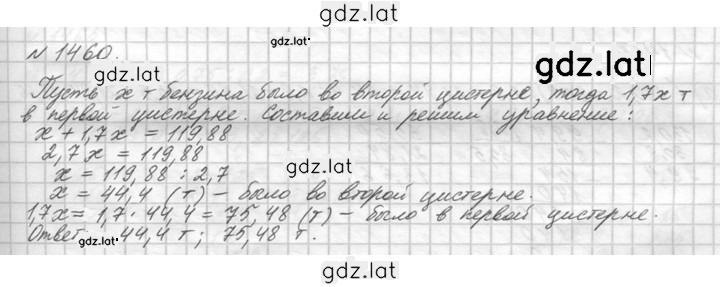 gdz.lat
gdz.lat
№ 1460.
gdz.lat
gdz.lat
Пусть x т бензина было во второй цистерне, тогда 1,7x т
в первой цистерне. Составим и решим уравнение:
x + 1,7x = 119,88
2,7x = 119,88
gdz.lat
x = 119,88 : 2,7
x = 44,4 (т) – было во второй цистерне.
1,7x = 1,7 · 44,4 = 75,48 (т) – было в первой цистерне.
gdz.lat
Ответ: 44,4 т; 75,48 т.
gdz.lat